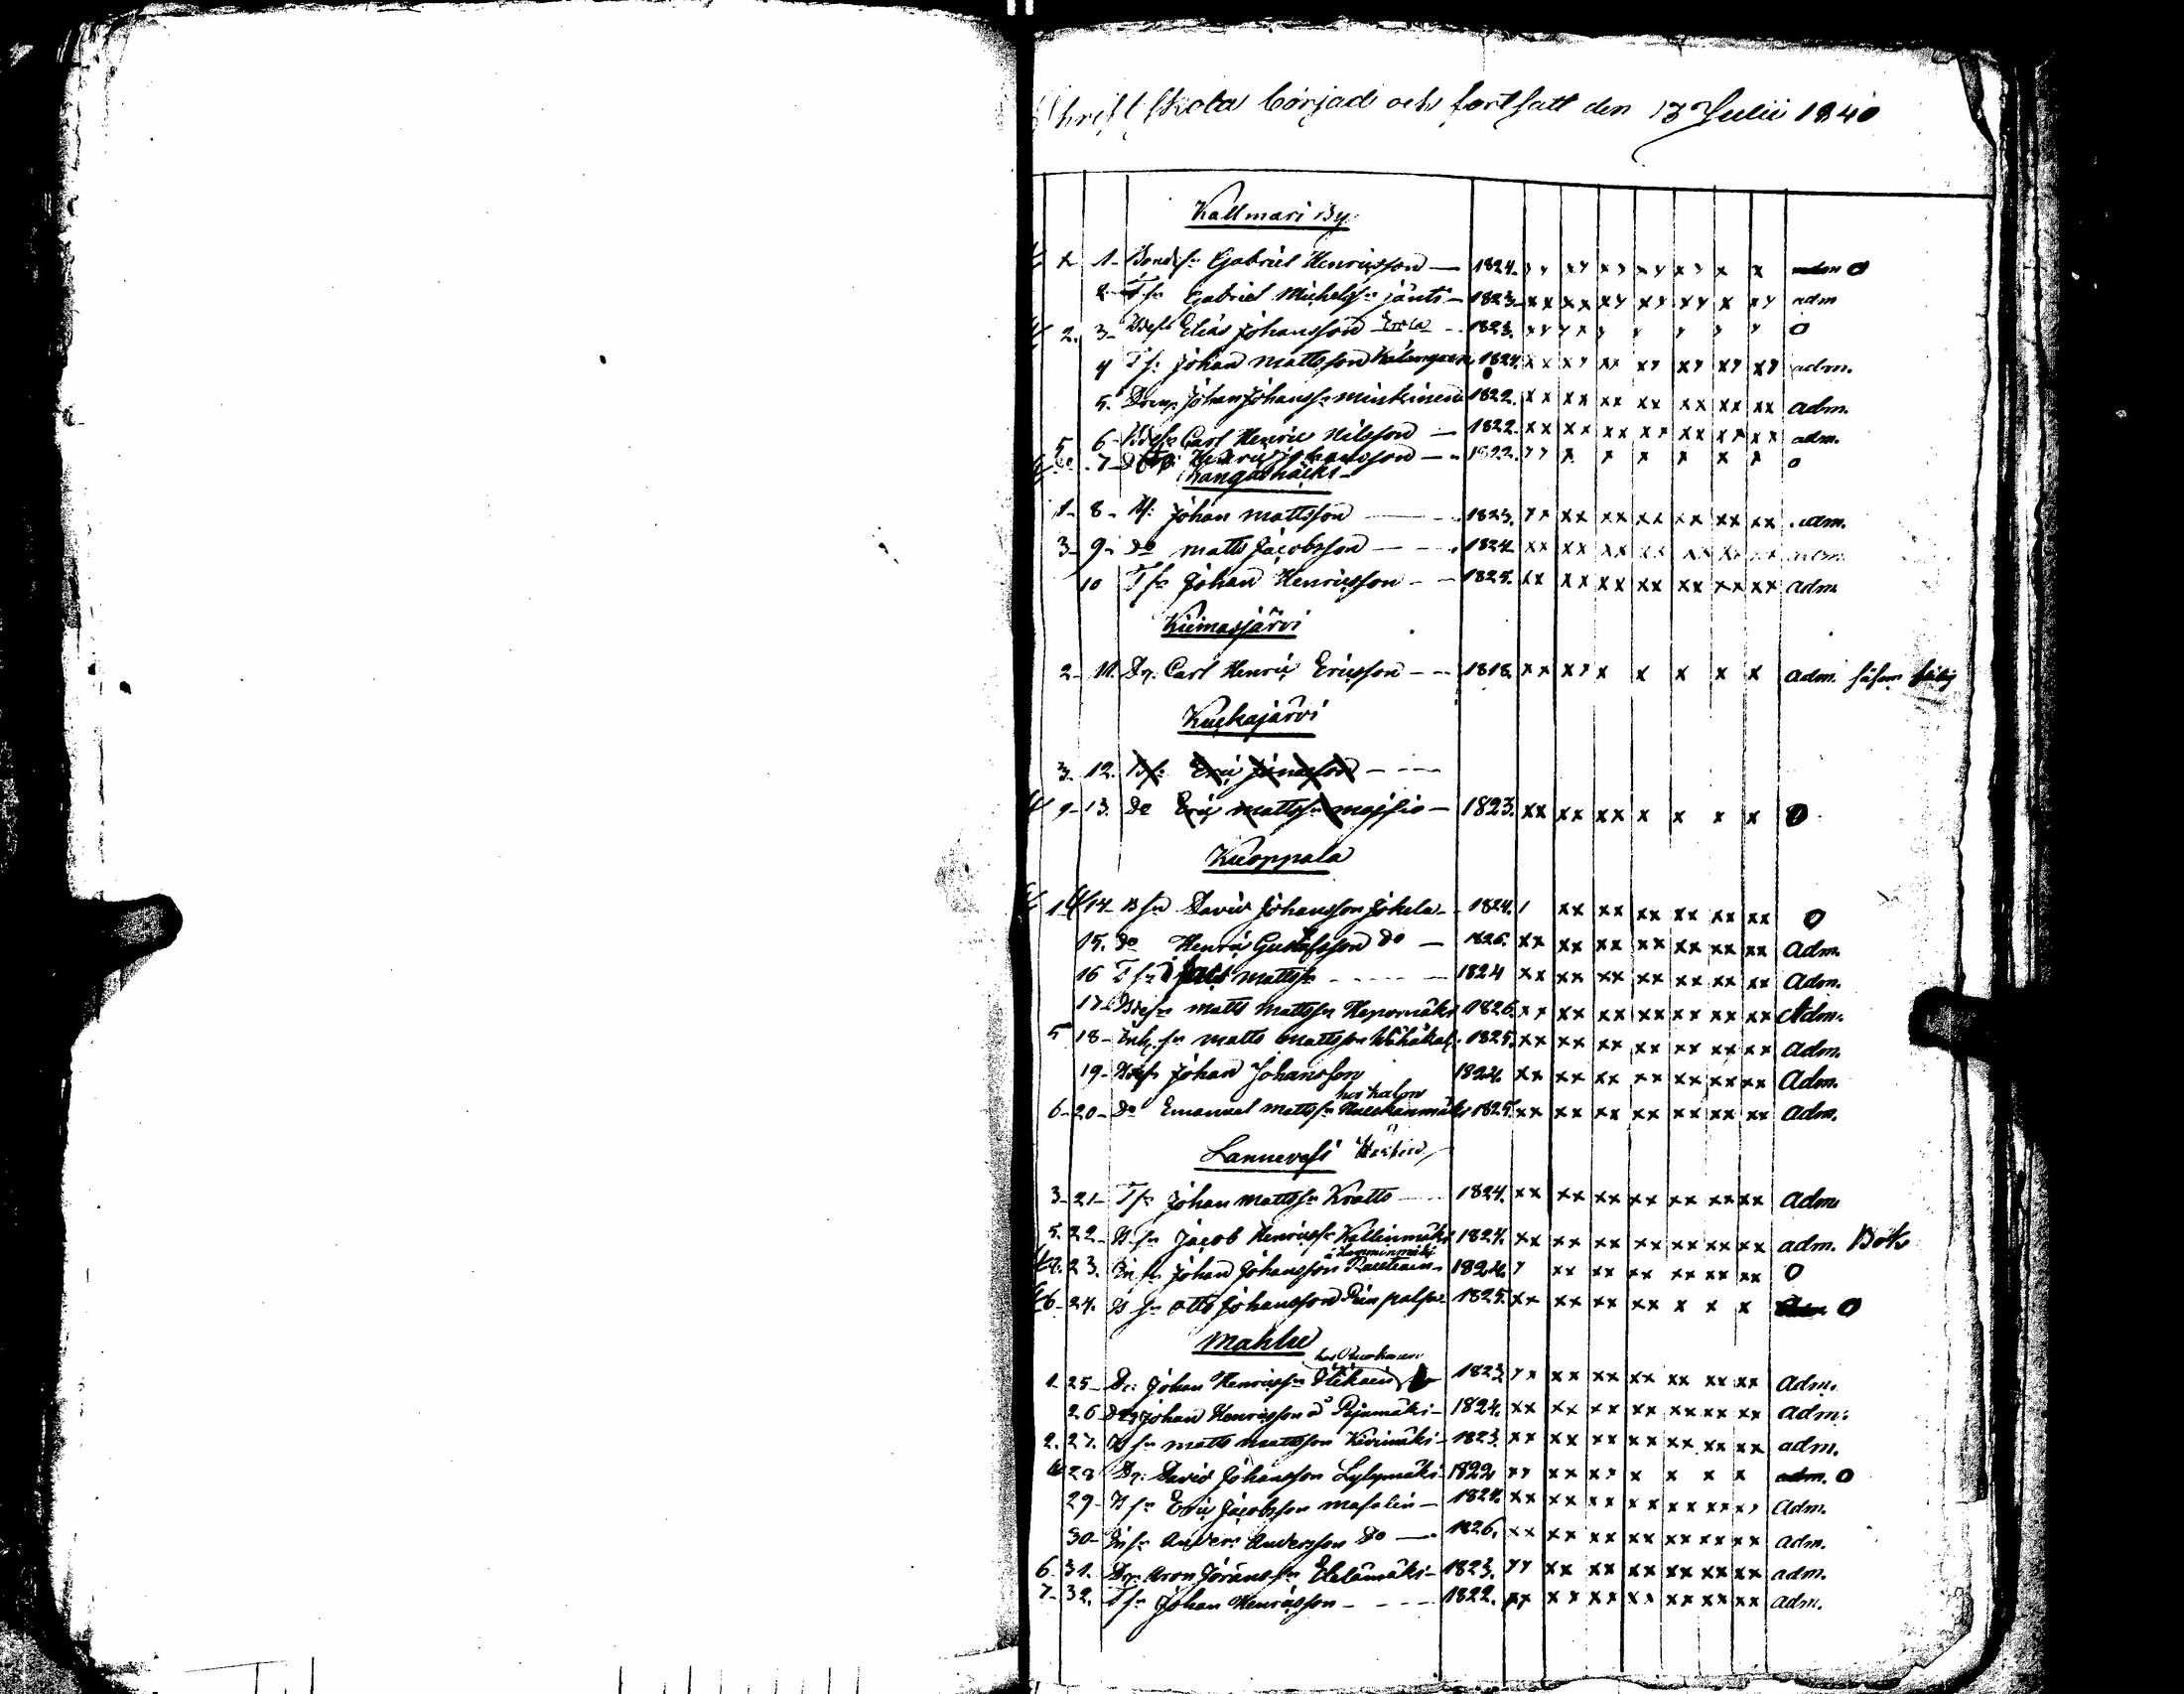 Skriftskola börjad och fortsatt den 13 Julii 1840
Kallmari By.
1- Bondes: Gabriel Henricsson — 1824. xx xx xx xx xx x x adm O
2- T fn Gabriel Michelsn Jänti - 1823 xx xx xx xx xx x xx adm
2. 3- Elias Johansson - 1823. xx xx x x x x x O
4 T fn Johan Mattsson 1824. xx xx xx xx xx xx xx adm.
5. Dreng Johan Johanssn Minkinen 1822. xx xx xx xx xx xx xx adm.
5 6- Carl Henric Nilsson — 1822. xx xx xx xx xx xx xx adm.
7- Henric Johansson — 1822. xx x x x x x x o
Kangashäcki-
1- 8- Johan Mattsson — 1823. xx xx xx xx xx xx xx adm.
3- 9- Do Matts Jacobsson — 1824 xx xx xx xx xx xx xx adm.
10 T fn Johan Henricsson - - 1825. xx xx xx xx xx xx xx adm
Kiimasjärvi
2- 11. Dr. Carl Henric Ericsson - - 1818. xx xx x x x x x adm.
Kuckajärvi
3. 12. B fn Eric Jonasson - - -
9- 13. Do Eric Mattsn — 1823. xx xx xx x x x x O
Kuoppala
1- 14- B fn David Johansson Jokela - 1824. / xx xx xx xx xx xx O
15. Do Henric Gustafsson Do — 1826. xx xx xx xx xx xx xx Adm.
16 T fn Mattsn - - - 1824 xx xx xx xx xx xx xx Adm.
17- Matts Mattsn 1826 xx xx xx xx xx xx xx Adm.
5 18- Inh. fn Matts Mattsson 1825. xx xx xx xx xx xx xx Adm.
19- Johan Johansson 1824. xx xx xx xx xx xx xx Adm.
6- 20- Do Emanuel Mattsn 1825. xx xx xx xx xx xx xx Adm.
Lannevesi
3- 21- T fn Johan Mattsn Kratts - - 1824. xx xx xx xx xx xx xx Adm
5. 22- B fn Jacob Henricsn Kallinmäki 1824. xx xx xx xx xx xx xx adm. Bots
23. Johan Johansson 1824. x xx xx xx xx xx xx O
6- 24. Otto Johansson 1825. xx xx xx xx x x x O
Mahlu
1- 25- Dr: Johan Henricsn 1823 xx xx xx xx xx xx xx Adm.
26 Johan Henricsson å Pajumäki - 1824. xx xx xx xx xx xx xx adm.
2. 27. B fn Matts Mattsson Kivimäki - 1823. xx xx xx xx xx xx xx adm.
28 Dr. David Johansson Lylymäki - 1822 xx xx xx x x x x adm. O
29- B fn Eric Jacobsson Masalin — 1824. xx xx xx xx xx xx xx adm.
30- Anders Andersson Do — 1826. xx xx xx xx xx xx xx adm.
6. 31. Dr. Aron Göranssn Etelämäki - 1823. xx xx xx xx xx xx xx adm.
7- 32. T fn Johan Henricsson - - - 1822. xx xx xx xx xx xx xx adm.